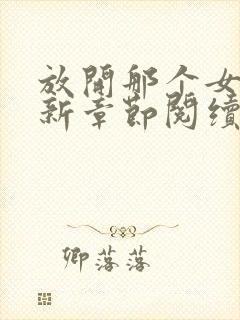 放開那个女
新章節閱續
卿落落